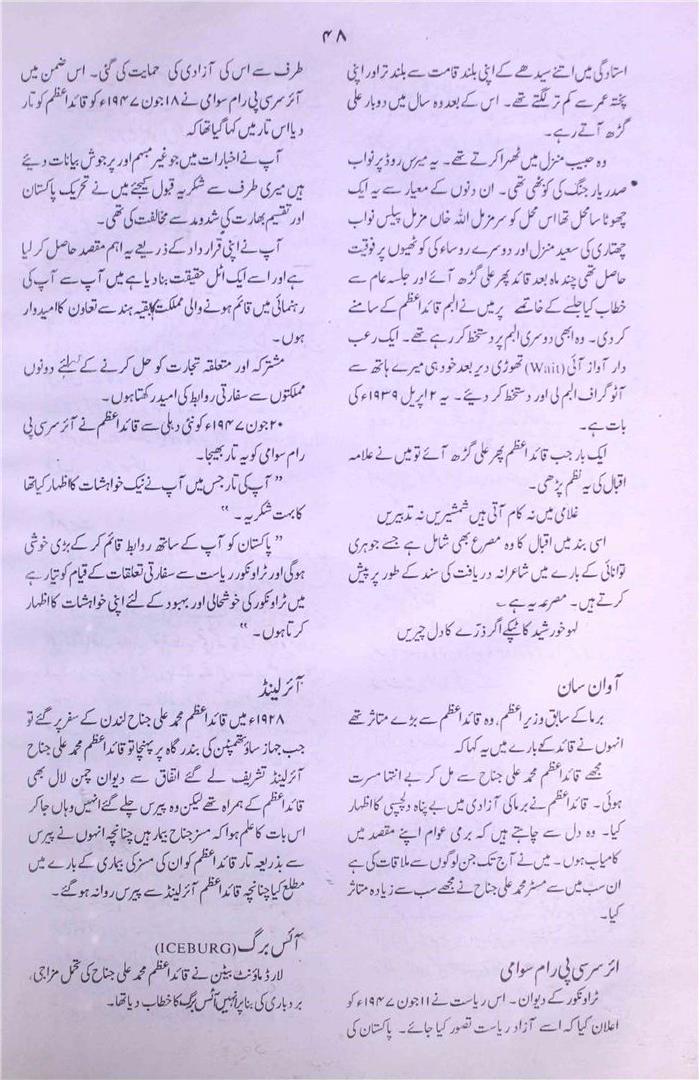 ۴۸
استادگی میں اتنے سیدھے کے اپنی بلند قامت سے بلند تر اور اپنی
پختہ عمر سے کم تر لگتے تھے۔ اس کے بعد وہ سال میں دوبار علی
گڑھ آتے رہے۔
وہ حبیب منزل میں ٹھہرا کرتے تھے۔ یہ میرس روڈ پر نواب
صدر یار جنگ کی کوٹھی تھی۔ ان دنوں کے معیار سے یہ ایک
چھوٹا سا محل تھا اس محل کو سر مزمل اللہ خاں مزمل پیلس نواب
چھتاری کی سعید منزل اور دوسرے روساء کی کوٹھیوں پر فوقیت
حاصل تھی چند ماہ بعد قائد پھر علی گڑھ آئے اور جلسہ عام سے
خطاب کیا جلسے کے خاتمے پر میں نے البم قائد اعظم کے سامنے
کر دی۔ وہ ابھی دوسری البم پر دستخط کر رہے تھے۔ ایک رعب
دار آواز آئی (Wait) تھوڑی دیر بعد خود ہی میرے ہاتھ سے
آٹو گراف البم لی اور دستخط کر دیئے۔ یہ ۲ اپریل ۱۹۳۹ء کی
بات ہے۔
ایک بار جب قائد اعظم پھر علی گڑھ آئے تو میں نے علامہ
اقبال کی یہ نظم پڑھی۔
غلامی میں نہ کام آتی ہیں شمشیریں نہ تدبیریں
اسی بند میں اقبال کا وہ مصرع بھی شامل ہے جسے جوہری
توانائی کے بارے میں شاعرانہ دریافت کی سند کے طور پر پیش
کرتے ہیں۔ مصرعہ یہ ہے۔
لہو خورشید کا ٹپکے اگر ذرے کا دل چیریں
آوان سان
برما کے سابق وزیر اعظم، وہ قائد اعظم سے بڑے متاثر تھے
انہوں نے قائد کے بارے میں یہ کہا کہ
مجھے قائد اعظم محمد علی جناح سے مل کر بے انتہا مسرت
ہوئی۔ قائد اعظم نے برما کی آزادی میں بے پناہ دلچسپی کا اظہار
کیا۔ وہ دل سے چاہتے ہیں کہ برمی عوام اپنے مقصد میں
کامیاب ہوں۔ میں نے آج تک جن لوگوں سے ملاقات کی ہے
ان سب میں سے مسٹر محمد علی جناح نے مجھے سب سے زیادہ متاثر
کیا۔
ائر سر سی پی رام سوامی
ٹراونکور کے دیوان۔ اس ریاست نے ۱۱ جون ۱۹۴۷ء کو
اعلان کیا کہ اسے آزاد ریاست تصور کیا جائے۔ پاکستان کی
طرف سے اس کی آزادی کی حمایت کی گئی۔ اس ضمن میں
آئر سر سی پی رام سوامی نے ۱۸ جون ۱۹۴۷ء کو قائد اعظم کو تار
دیا اس تار میں کہا گیا تھا کہ
آپ نے اخبارات میں جو غیر مبہم اور پرجوش بیانات دیئے
ہیں میری طرف سے شکریہ قبول کیجئے میں نے تحریک پاکستان
اور تقسیم بھارت کی شدومد سے مخالفت کی تھی۔
آپ نے اپنی قرار داد کے ذریعے یہ اہم مقصد حاصل کر لیا
ہے اور اسے ایک اٹل حقیقت بنا دیا ہے میں آپ سے آپ کی
رہنمائی میں قائم ہونے والی مملکت کا بقیہ ہند سے تعاون کا امیدوار
ہوں۔
مشترکہ اور متعلقہ تجارت کو حل کرنے کے لئے دونوں
مملکتوں سے سفارتی روابط کی امید رکھتا ہوں۔
۲۰ جون ۱۹۴۷ء کو نئی دہلی سے قائد اعظم نے آئر سر سی پی
رام سوامی کو یہ تار بھیجا۔
” آپ کی تار جس میں آپ نے نیک خواہشات کا اظہار کیا تھا
کا بہت شکریہ۔ “
” پاکستان کو آپ کے ساتھ روابط قائم کر کے بڑی خوشی
ہو گی اور ٹراونکور ریاست سے سفارتی تعلقات کے قیام کو تیار ہے
میں ٹراونکور کی خوشحالی اور بہبود کے لئے اپنی خواہشات کا اظہار
کرتا ہوں۔ “
آئر لینڈ
۱۹۲۸ء میں قائد اعظم محمد علی جناح لندن کے سفر پر گئے تو
جب جہاز ساؤتھمپٹن کی بندر گاہ پر پہنچا تو قائد اعظم محمد علی جناح
آئرلینڈ تشریف لے گئے اتفاق سے دیوان چمن لال بھی
قائد اعظم کے ہمراہ تھے لیکن وہ پیرس چلے گئے انہیں وہاں جا کر
اس بات کا علم ہوا کہ مسز جناح بیمار ہیں چنانچہ انہوں نے پیرس
سے بذریعہ تار قائد اعظم کو ان کی مسز کی بیماری کے بارے میں
مطلع کیا چنانچہ قائد اعظم آئرلینڈ سے پیرس روانہ ہو گئے۔
آئس برگ (ICEBURG)
لارڈ ماؤنٹ بیٹن نے قائد اعظم محمد علی جناح کی تحمل مزاجی،
بردباری کی بنا پر انہیں آئس برگ کا خطاب دیا تھا۔